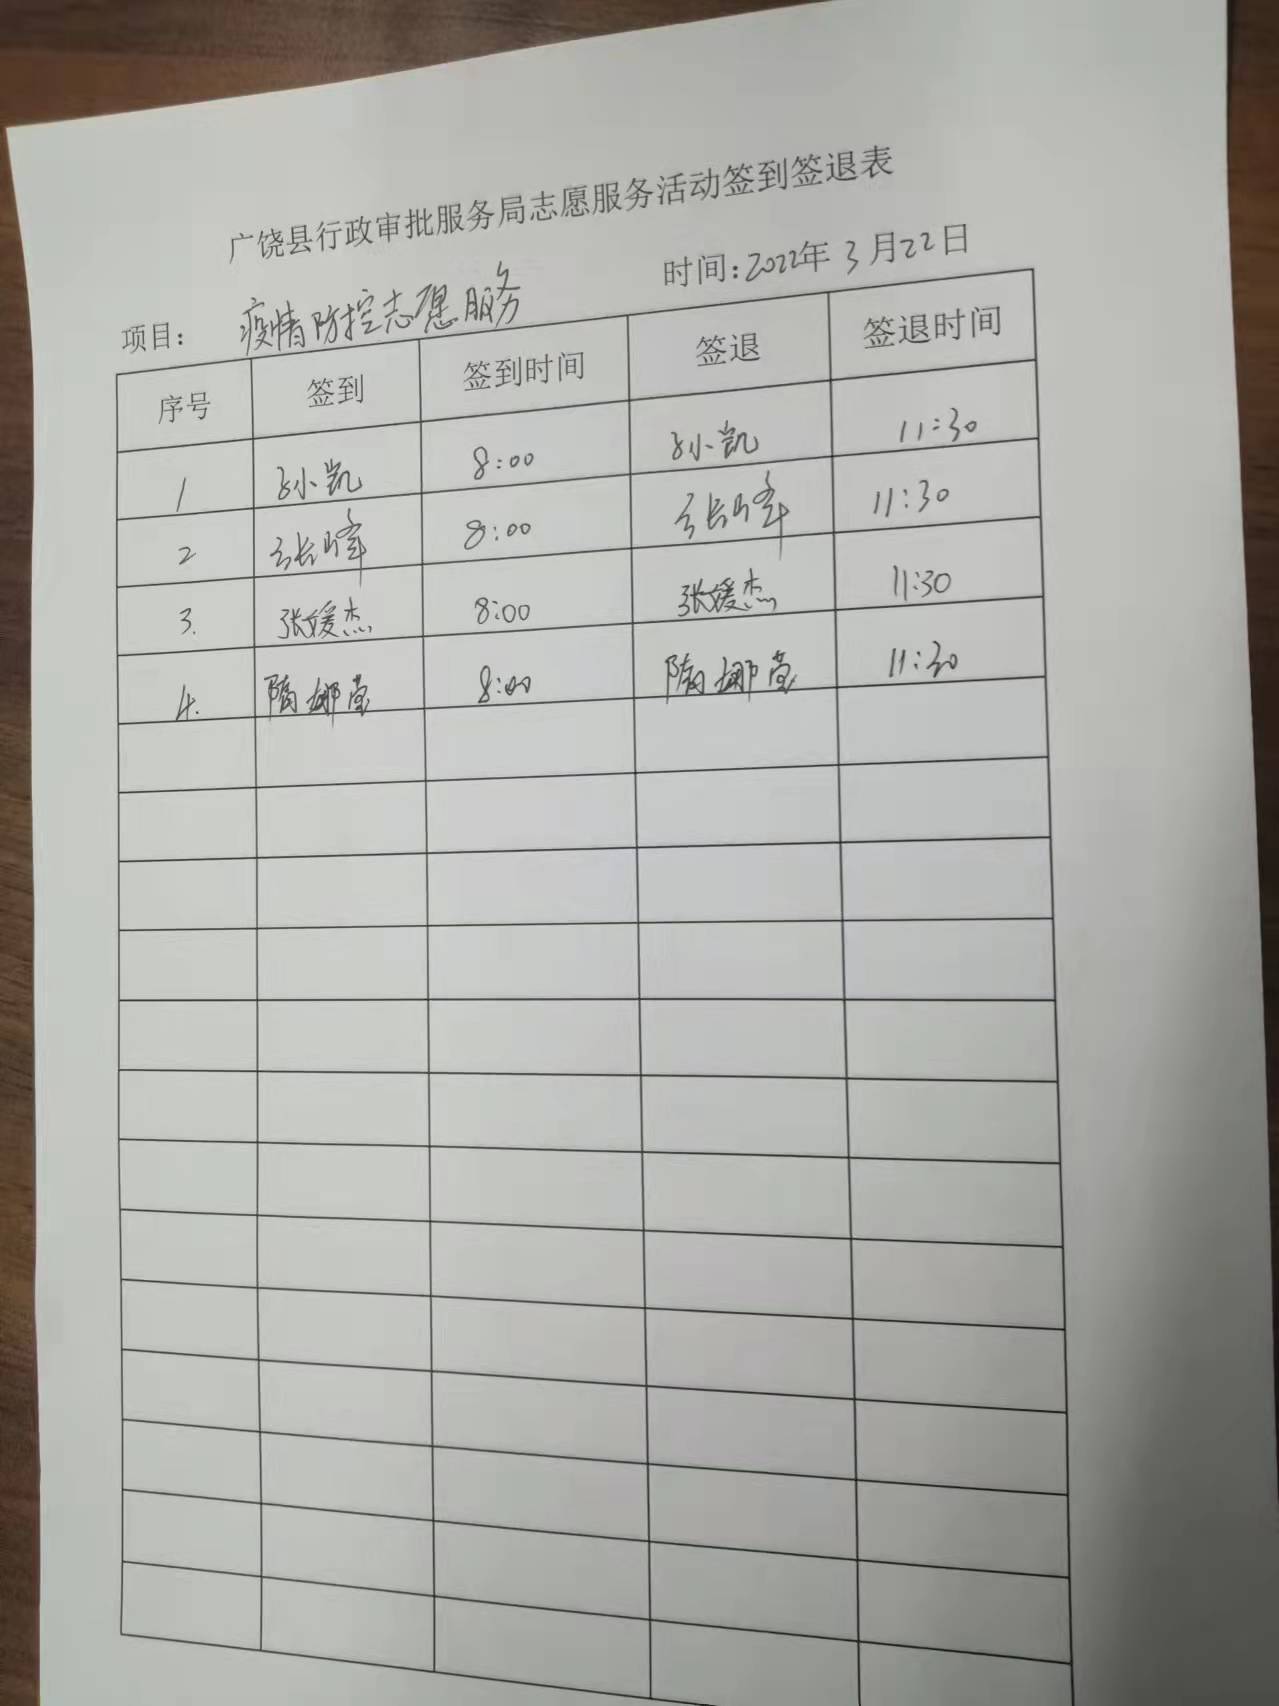 广饶县行政审批服务局志愿服务活动签到签退表
项目： 疫情防控志愿服务 时间：2022年3月22日
序号 签到 签到时间 签退 签退时间
1 孙小凯 8:00 孙小凯 11:30
2 张峰 8:00 张峰 11:30
3. 张媛杰 8:00 张媛杰 11:30
4. 隋娜莹 8:00 隋娜莹 11:30